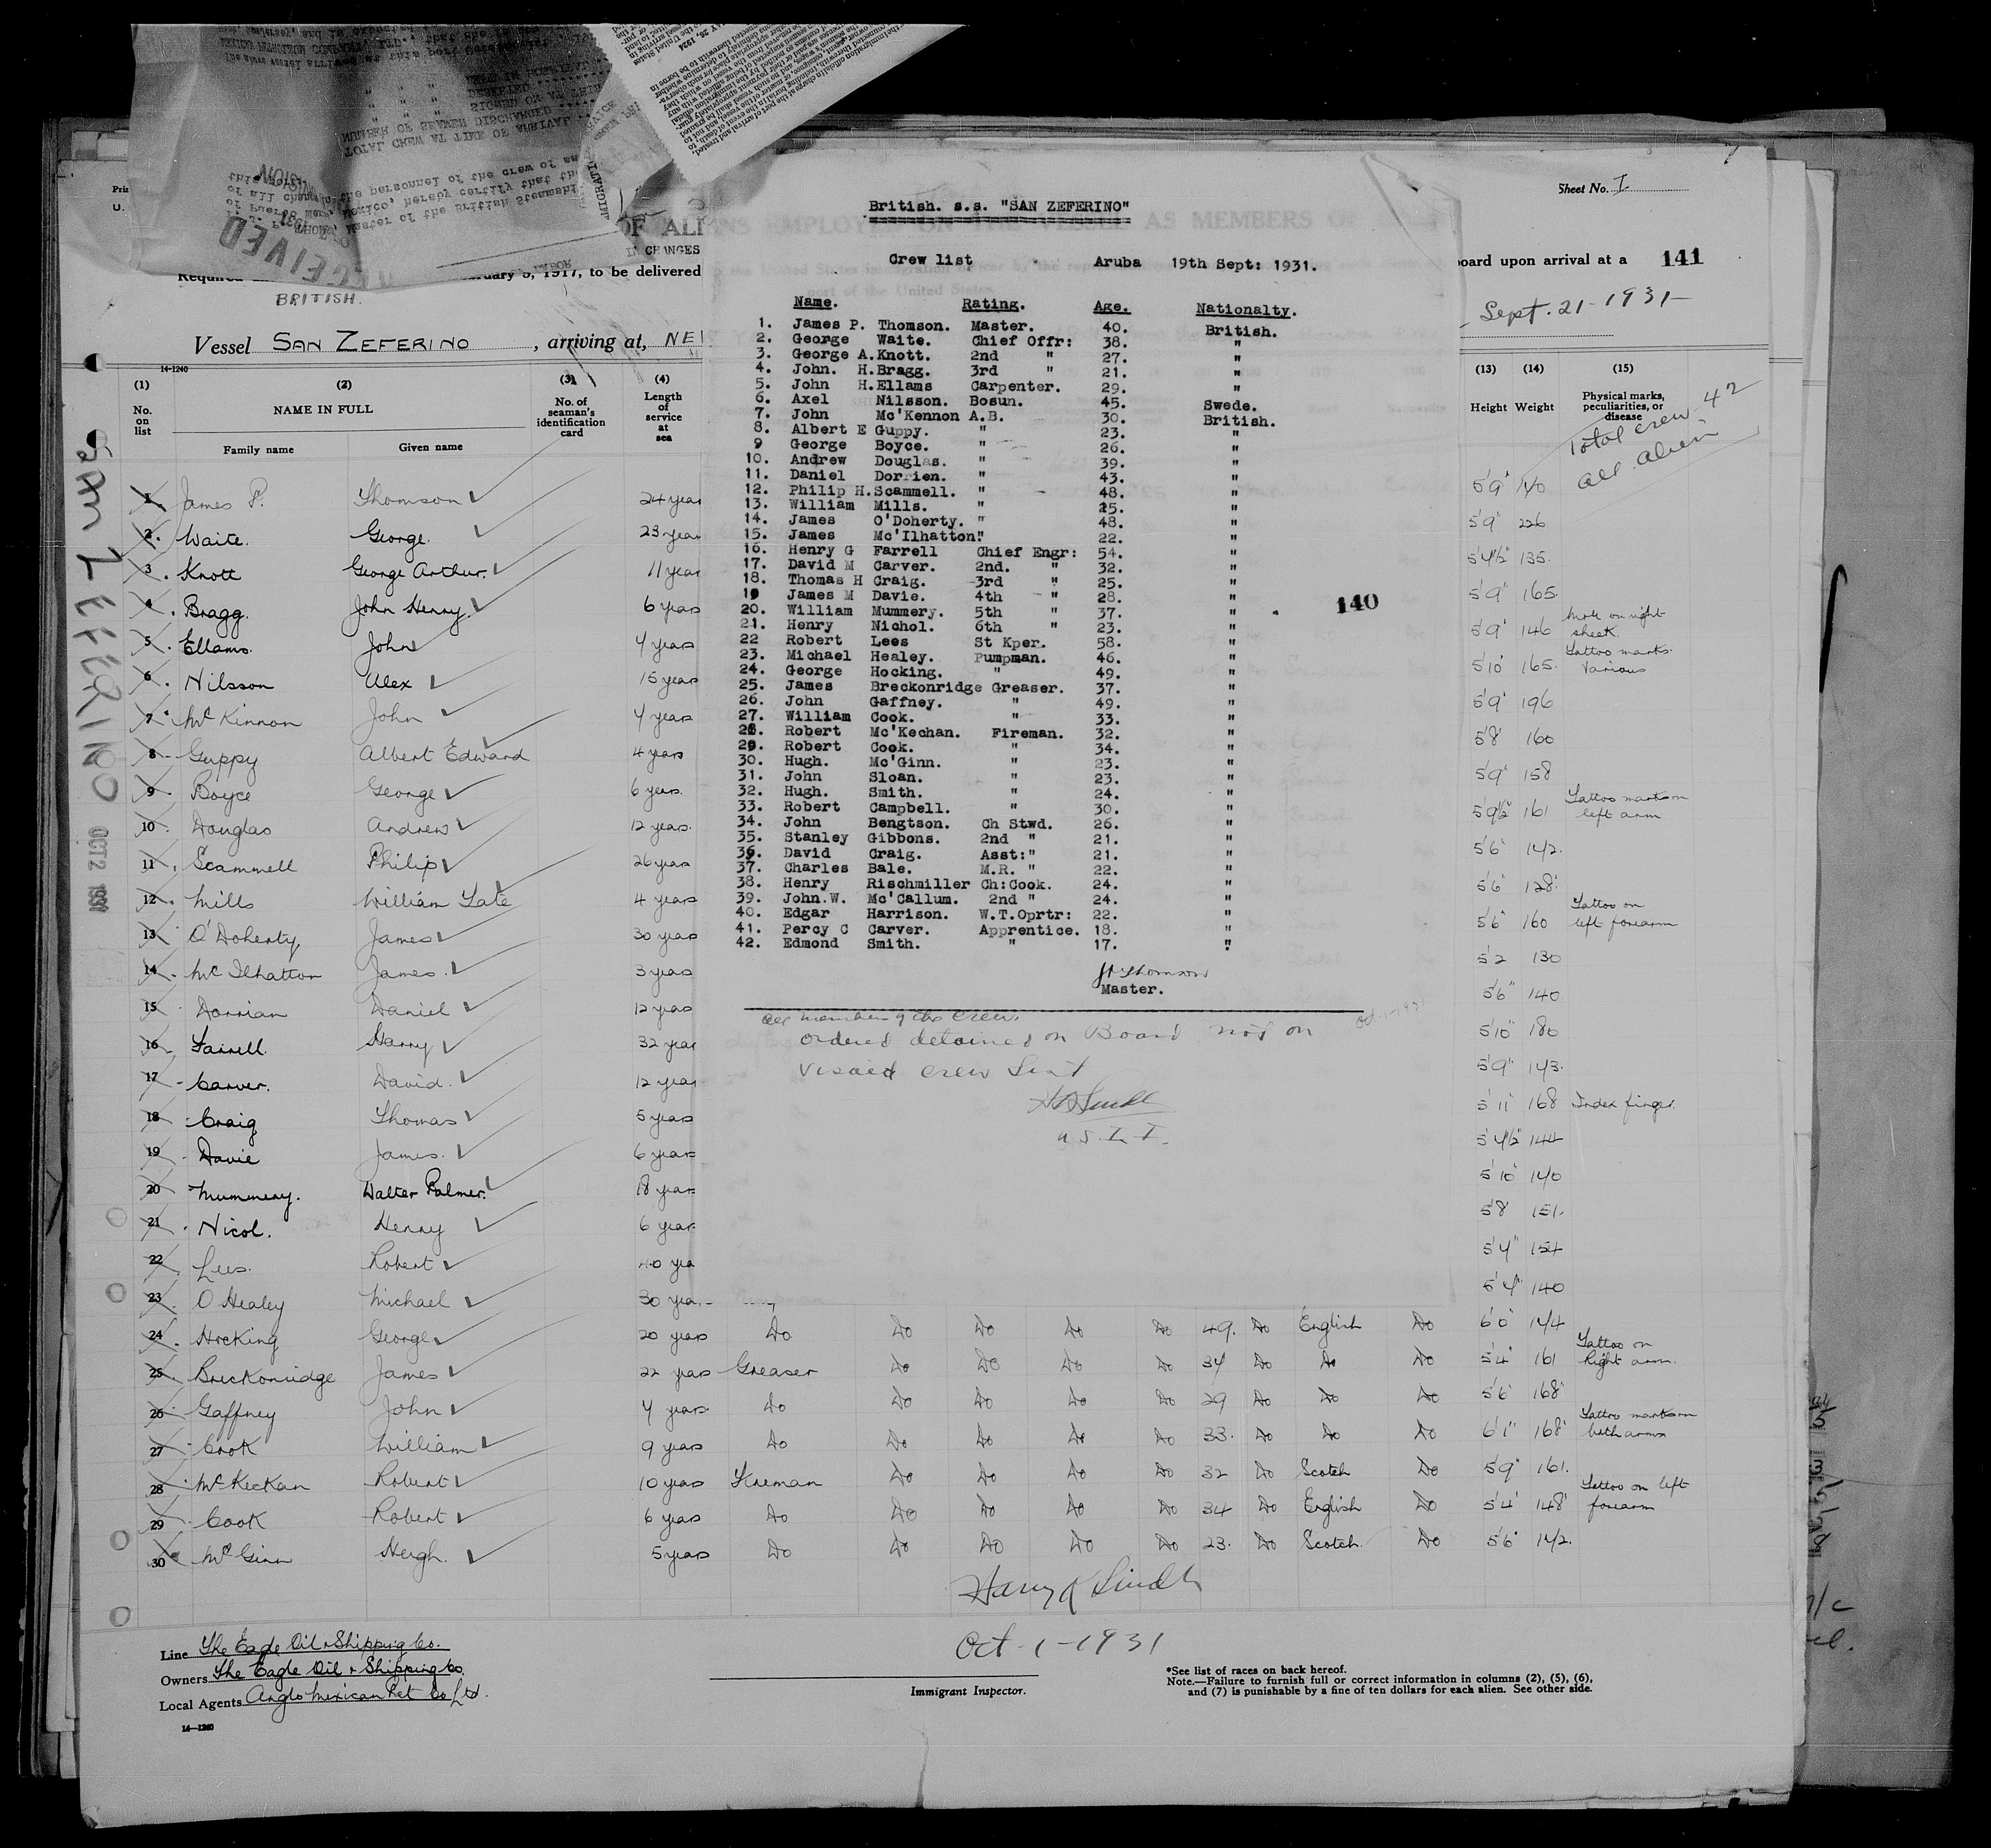 Sheet No. I
British. s.s. "SAN ZEFERINO"
Crew list Aruba 19th Sept: 1931.
Name. Rating. Age. Nationalty.
1. James P. Thomson. Master. 40. British.
2. George Waite. Chief Offr: 38. "
3. George A.Knott. 2nd " 27. "
4. John. H.Bragg. 3rd " 21. "
5. John H.Ellams Carpenter. 29. "
6. Axel Nilsson. Bosun. 45. Swede.
7. John Mc'Kennon A.B. 30. British.
8. Albert E Guppy. " 23. "
9 George Boyce. " 26. "
10. Andrew Douglas. " 39. "
11. Daniel Dorrien. " 43. "
12. Philip H.Scammell. " 48. "
13. William Mills. " 25. "
14. James O'Doherty. " 48. "
15. James Mc'Ilhatton." 22. "
16. Henry G Farrell Chief Engr: 54. "
17. David M Carver. 2nd. " 32. "
18. Thomas H Craig. 3rd " 25. "
19 James M Davie. 4th " 28. "
20. William Mummery. 5th " 37. "
21. Henry Nichol. 6th " 23. "
22 Robert Lees St Kper. 58. "
23. Michael Healey. Pumpman. 46. "
24. George Hocking. " 49. "
25. James Breckonridge Greaser. 37. "
26. John Gaffney. " 49. "
27. William Cook. " 33. "
28. Robert Mc'Kechan. Fireman. 32. "
29. Robert Cook. " 34. "
30. Hugh. Mc'Ginn. " 23. "
31. John Sloan. " 23. "
32. Hugh. Smith. " 24. "
33. Robert Campbell. " 30. "
34. John Bengtson. Ch Stwd. 26. "
35. Stanley Gibbons. 2nd " 21. "
36. David Craig. Asst:" 21. "
37. Charles Bale. M.R. " 22. "
38. Henry Rischmiller Ch:Cook. 24. "
39. John.W. Mc'Callum. 2nd " 24. "
40. Edgar Harrison. W.T.Oprtr: 22. "
41. Percy C Carver. Apprentice. 18. "
42. Edmond Smith. " 17. "
Master.
140
all members of the Crew.
ordered detained on Board not on
visaed crew List
U.S.I.I.
Oct-1-1931
OF ALI
IN CHANGES
5, 1917, to be delivered
board upon arrival at a 141
BRITISH.
Sept. 21-1931
Vessel SAN ZEFERINO, arriving at, NE
14-1240
(1) (2) (3) (4) (13) (14) (15)
No. on list NAME IN FULL No. of seaman's identification card Length of service at sea Height Weight Physical marks, peculiarities, or disease
Family name Given name
Total crew 42
all alien
SAN ZEFERINO OCT 2 1931
1 James P. Thomson 24 year 5'9" 140
2. Waite. George. 23 year 5'9" 226
3. Knott George Arthur. 11 year 5'4½" 135.
4. Bragg. John Henry. 6 years 5'9" 165.
5. Ellams. John 4 years 5'9" 146 Mole on right cheek.
6. Nilsson Alex 15 years 5'10" 165. Tattoo marks. Various
7. McKinnon John 4 years 5'9" 196
8 Guppy Albert Edward 4 years 5'8" 160
9. Boyce George 6 years. 5'9" 158
10. Douglas Andrew 12 years. 5'9½" 161 Tattoo marks on left arm
11. Scammell Philip 26 years 5'6" 142.
12. Mills William Tate 4 years 5'6" 128
13 O'Doherty James 30 years 5'6" 160 Tattoo on left forearm
14. McIlhatton James. 3 years 5'2 130
15 Dorrian Daniel 12 years 5'6" 140
16. Farrell. Harry 32 year 5'10" 180
17 Carver. David. 12 year 5'9" 143.
18. Craig Thomas 5 years 5'11" 168 Index finger
19 Davie James. 6 years 5'4½" 144
20 Mummery. Walter Palmer. 18 year 5'10" 140
21. Nicol. Henry 6 year 5'8" 151.
22. Lees. Robert 40 yea 5'4" 154
23. O Healey Michael 30 yea 5'4" 140
24. Hocking George 20 years Do Do Do Do Do 49. Do English Do 6'0" 144
25. Breckonridge James 22 years Greaser Do Do Do Do 34 Do Do Do 5'4" 161 Tattoo on Right arm.
26. Gaffney John 4 years. Do Do Do Do Do 29 Do Do Do 5'6" 168
27. Cook William 9 years Do Do Do Do Do 33. Do Do Do 6'1" 168 Tattoo marks on both arms
28. McKeckan Robert 10 years Fireman Do Do Do Do 32 Do Scotch Do 5'9" 161.
29. Cook Robert 6 years Do Do Do Do Do 34 Do English Do 5'4" 148 Tattoo on left forearm
30. McGinn Hugh. 5 years Do Do Do Do Do 23. Do Scotch Do 5'6" 142.
Oct-1-1931
Immigrant Inspector.
Line The Eagle Oil & Shipping Co.
Owners The Eagle Oil & Shipping Co.
Local Agents Anglo Mexican Pet Co Ltd.
14-1240
*See list of races on back hereof.
Note.—Failure to furnish full or correct information in columns (2), (5), (6),
and (7) is punishable by a fine of ten dollars for each alien. See other side.